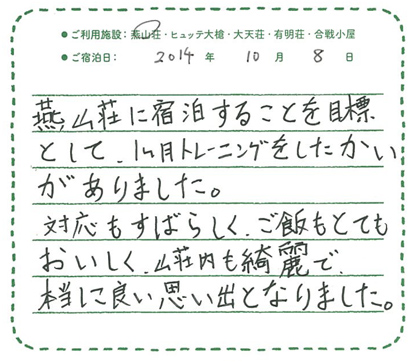 ● ご利用施設：燕山荘・ヒュッテ大槍・大天荘・有明荘・合戦小屋
● ご宿泊日： 2014 年 10 月 8 日
燕山荘に宿泊することを目標
として、1ヶ月トレーニングをしたかい
がありました。
対応もすばらしく、ご飯もとても
おいしく、山荘内も綺麗で、
本当に良い思い出となりました。